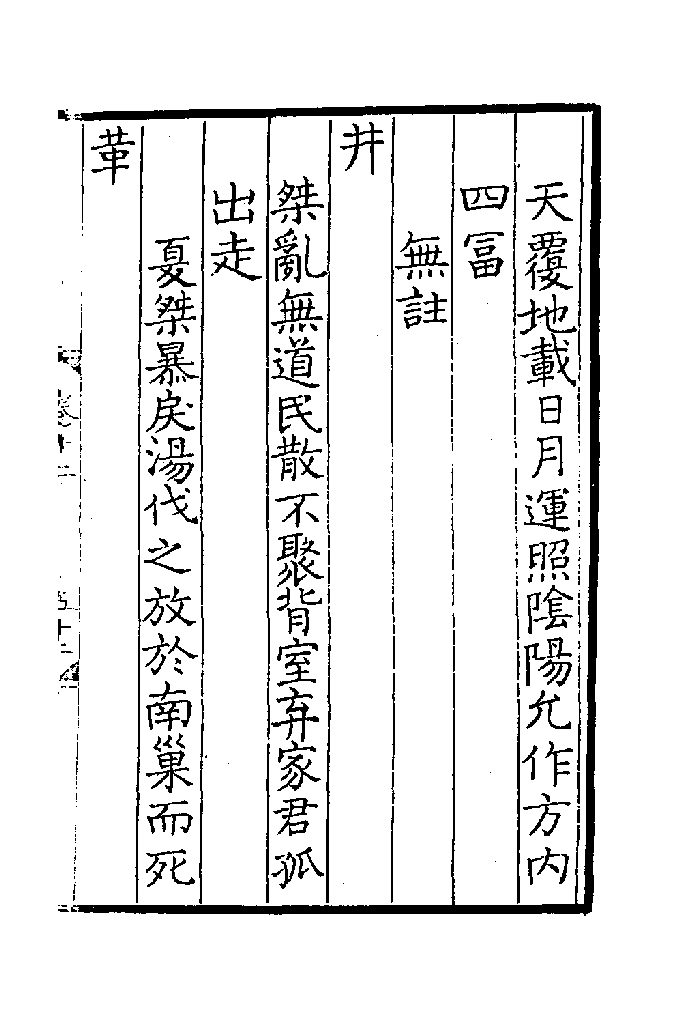 天覆地載日月運照陰陽允作方內
四冨
無註
井
桀亂無道民散不聚背室弃家君孤
出走
夏桀暴戾湯伐之放於南巢而死
革